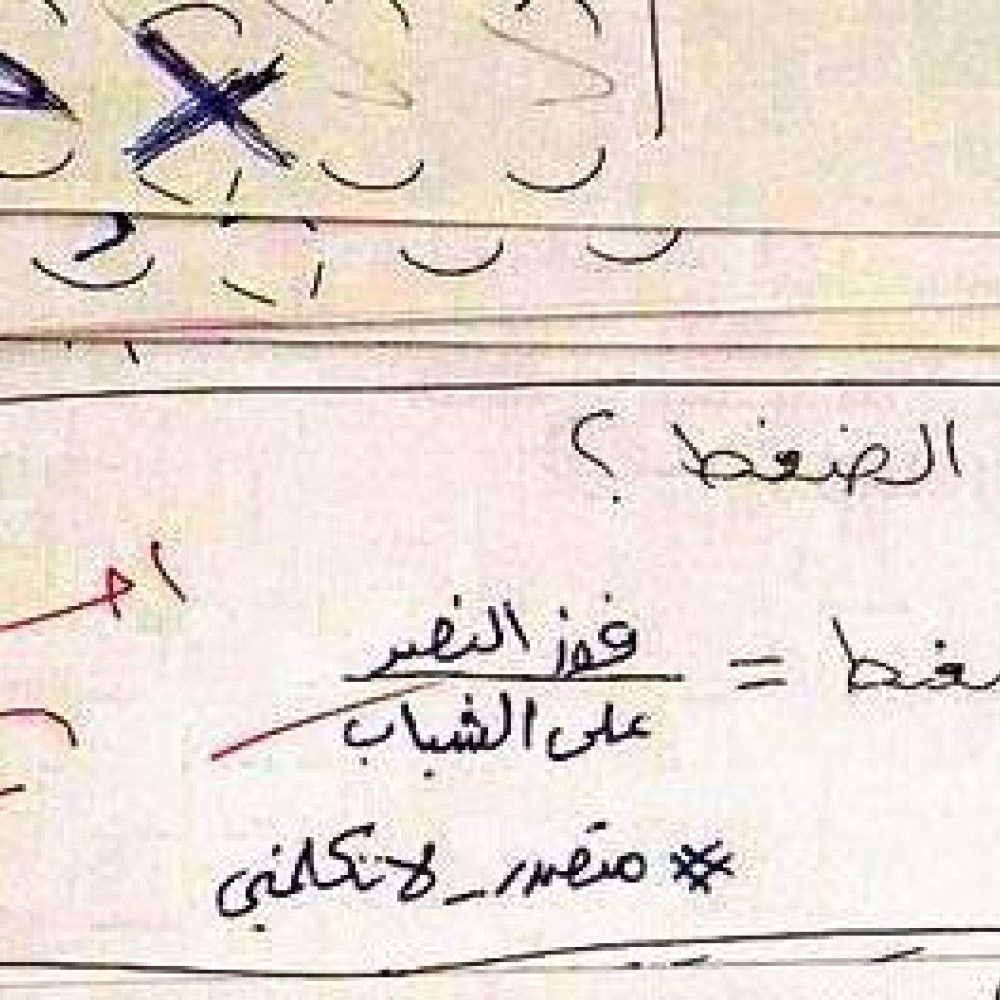 الضغط ؟
ـغط = فوز النصر
على الشباب
# متصدر_لاتكلمني